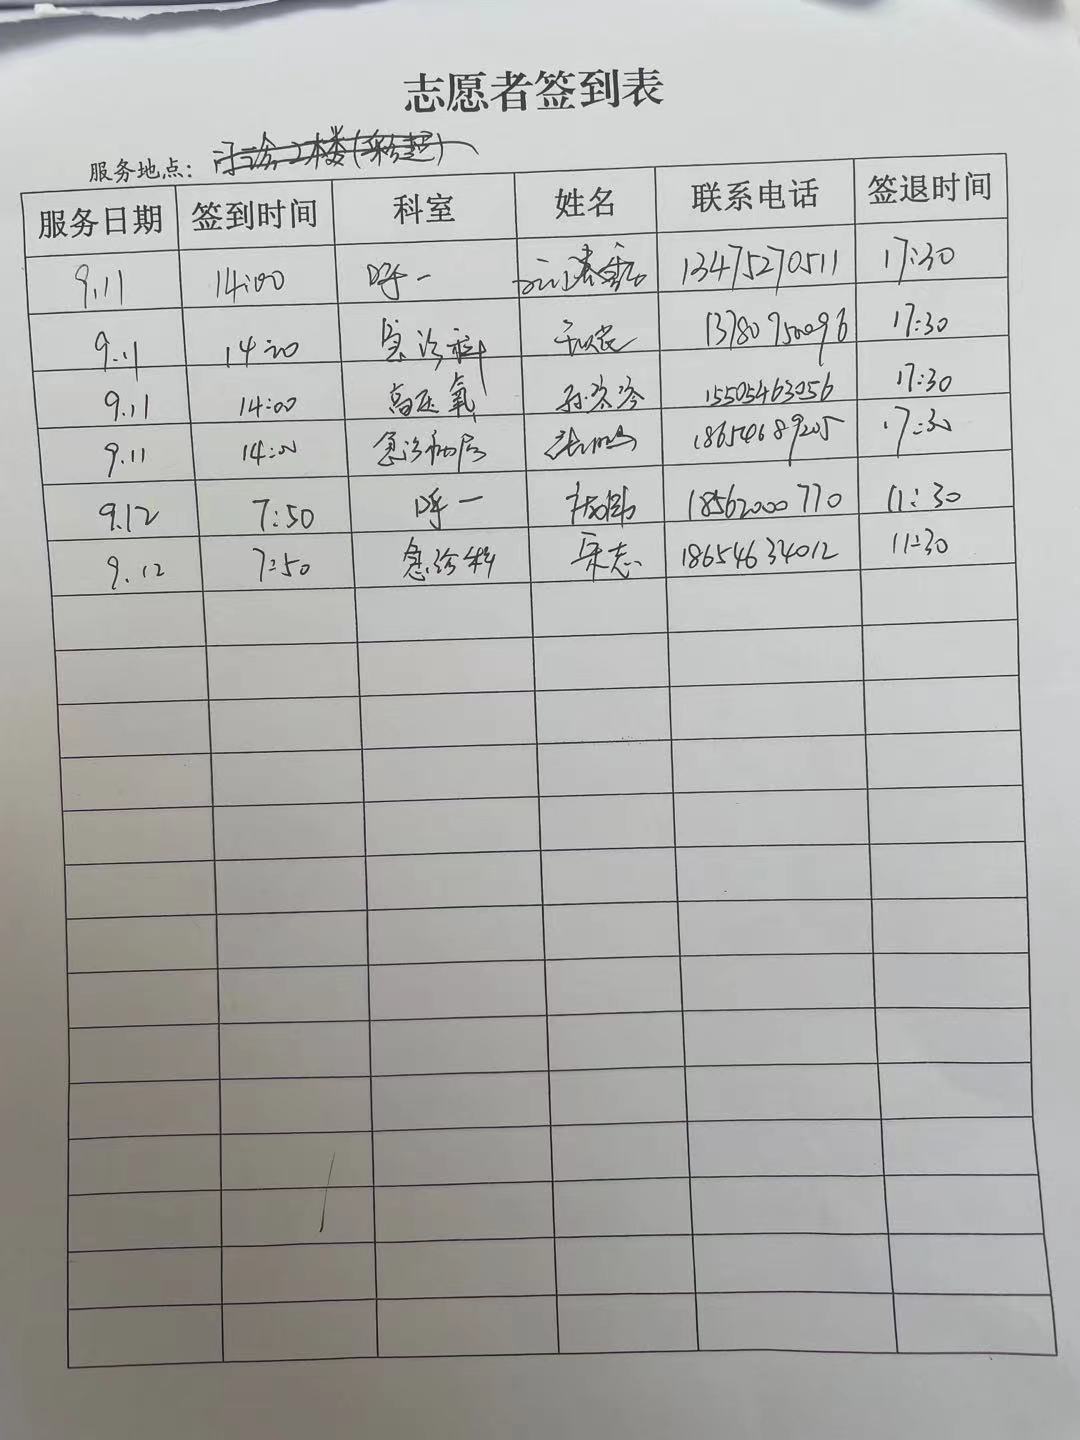 志愿者签到表
服务地点：门诊2楼(彩超)
服务日期 签到时间 科室 姓名 联系电话 签退时间
9.11 14:00 呼一 13475270511 17:30
9.11 14:00 急诊科 13780750096 17:30
9.11 14:00 高压氧 15505463056 17:30
9.11 14:00 急诊病房 18654689205 17:30
9.12 7:50 呼一 18562000770 11:30
9.12 7:50 急诊科 18654634012 11:30